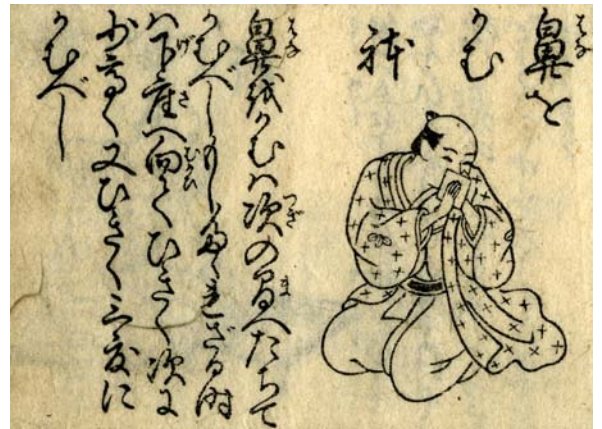 鼻を
かむ
躰
鼻をかむハ次の間へたちて
かむべしもしたゝれざる時
ハ下座へ向てひきく次に
少高く又ひきく三度に
かむべし